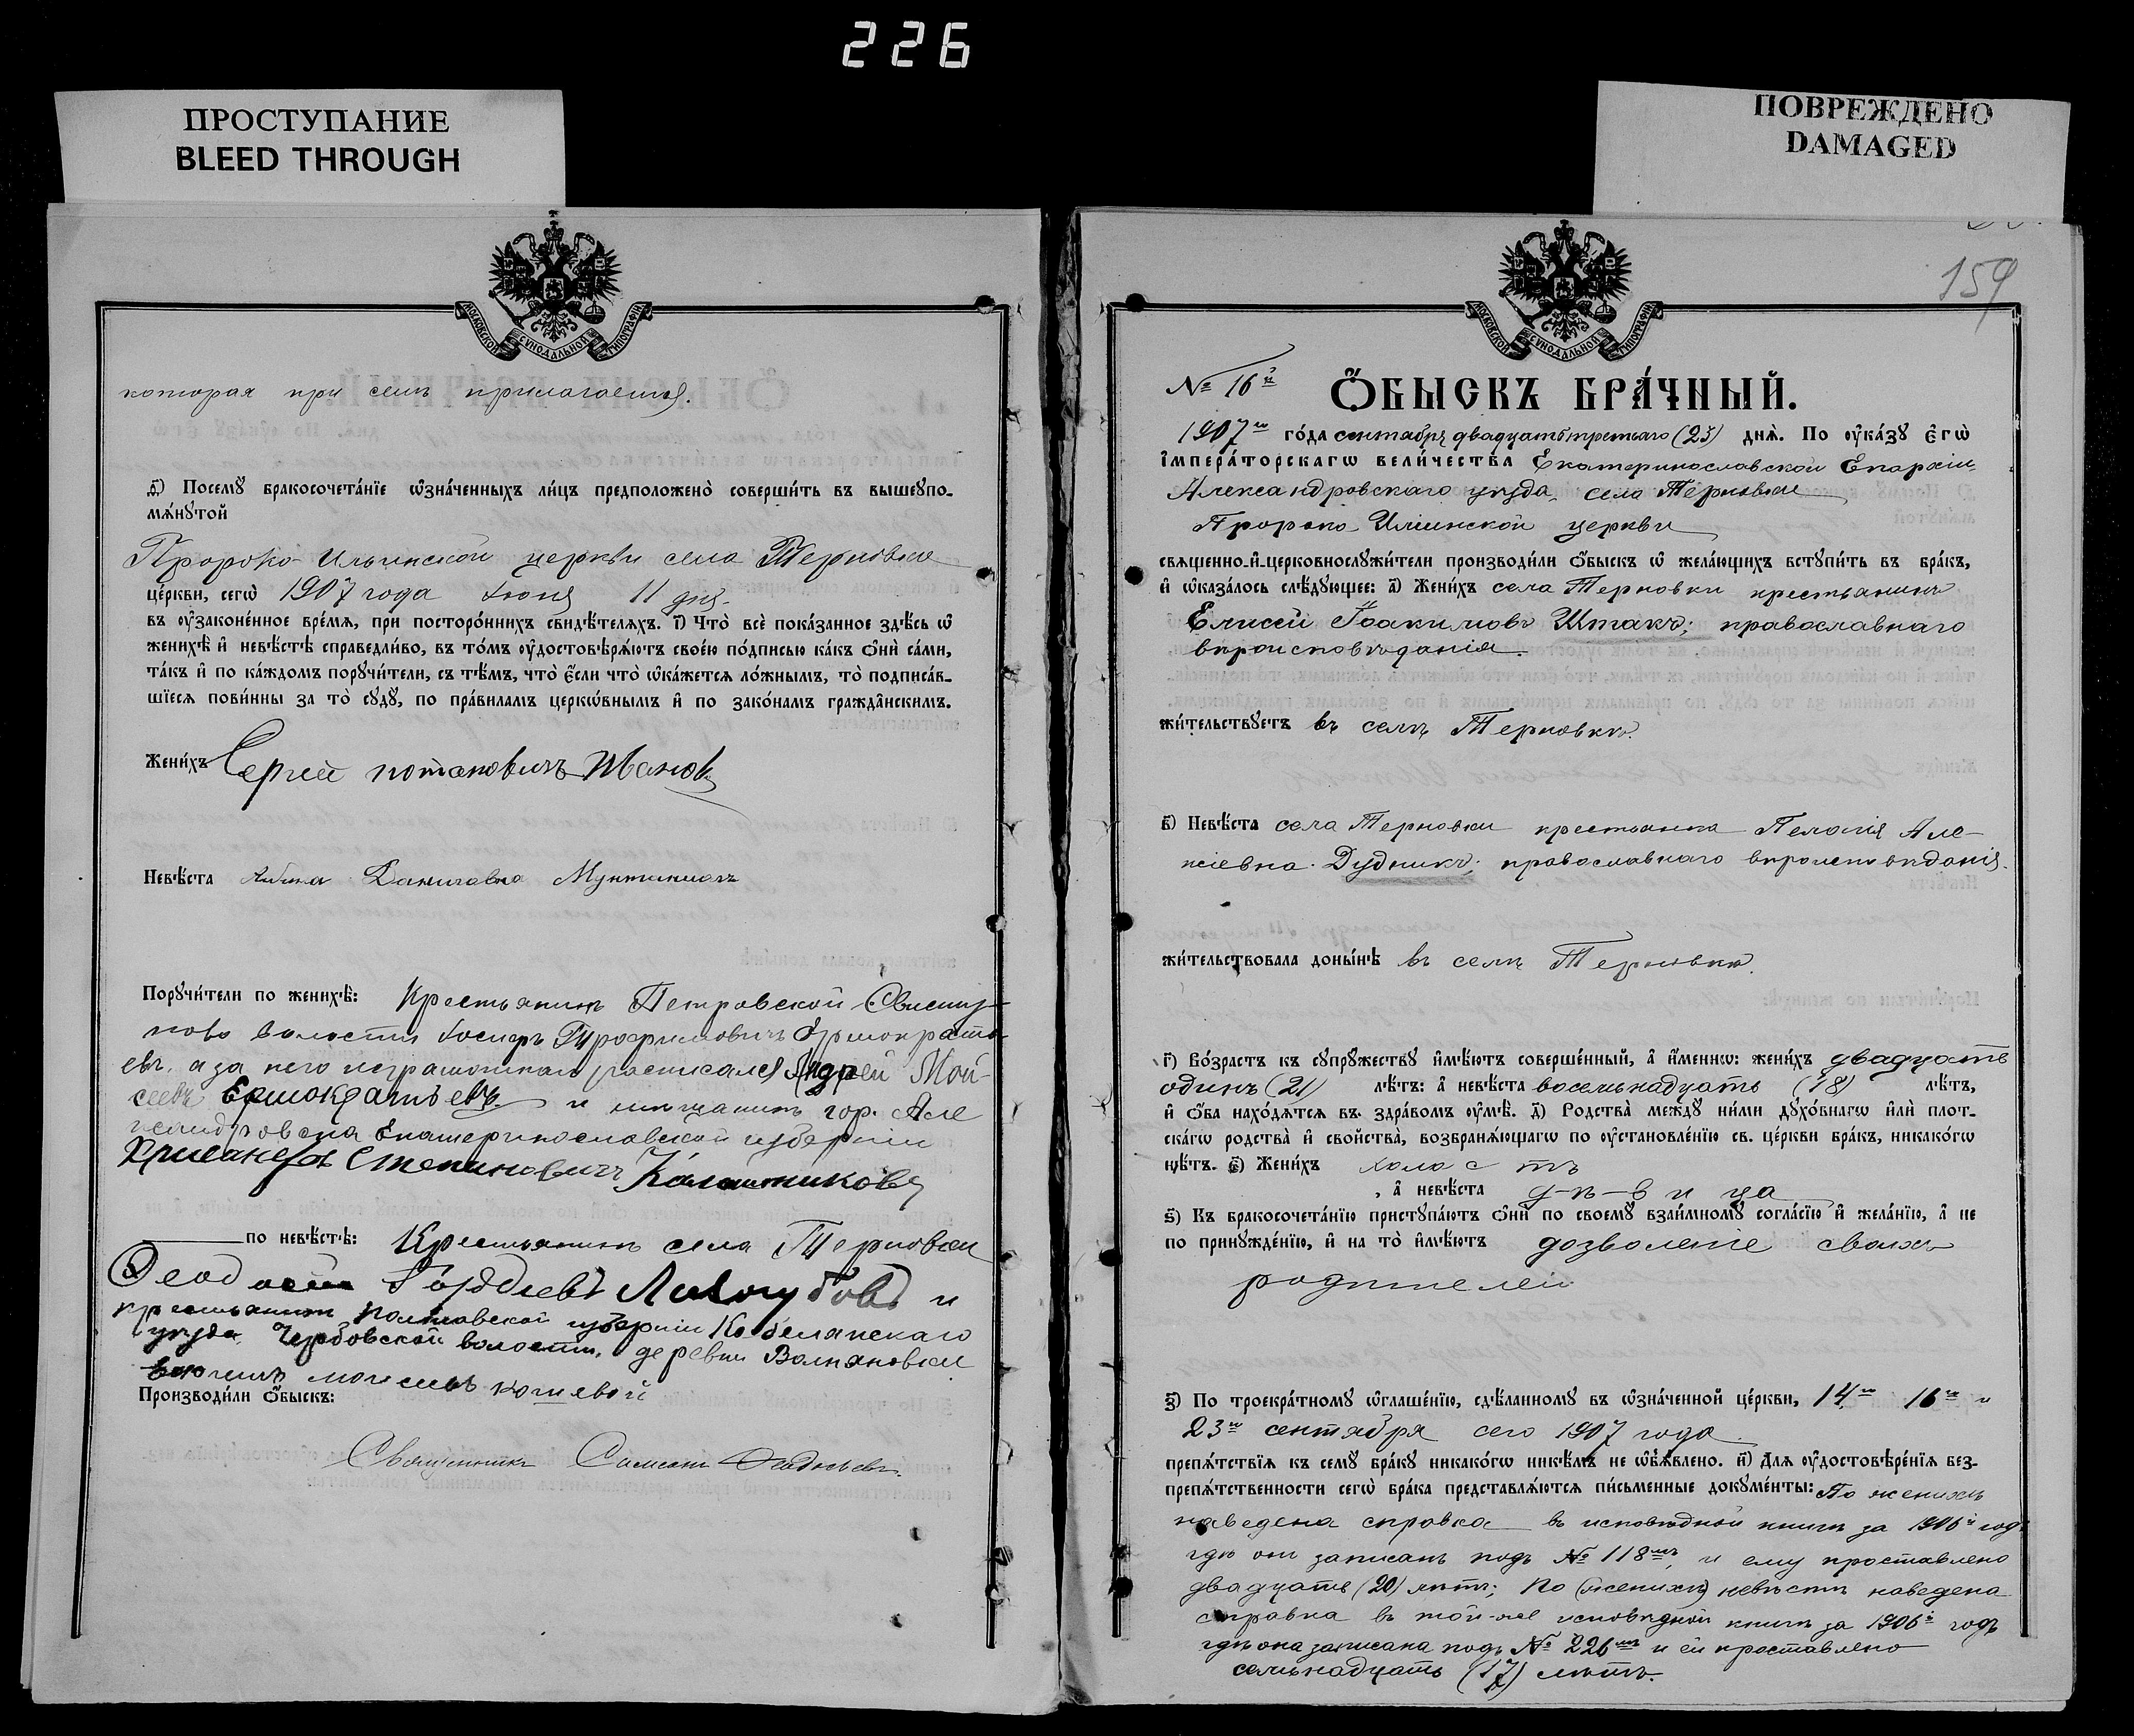 226
ПРОСТУПАНИЕ
BLEED THROUGH
ПОВРЕЖДЕНО
DAMAGED
МОСКОВСКОЙ СѴНОДАЛЬНОЙ ТИПОГРАФІИ
которая при семъ прилагается.
Посемꙋ̀ бракосочета́нїе ѡ҆зна́ченныхъ ли́цъ предположено̀ соверши́ть въ вышеупо-
мѧ́нꙋтой
Пророко-Ильинской церкви села Терновки
це́ркви, сегѡ̀ 1907 года Іюня 11 дня.
въ ᲂу҆зако́ненное вре́мѧ, при посторо́ннихъ свидѣ́телѧхъ. і҃) Что̀ всѐ пока́занное здѣ́сь ѡ҆
женихѣ̀ и҆ невѣ́стѣ справедли́во, въ то́мъ ᲂу҆достовѣрѧ́ютъ свое́ю по́дписью ка́къ ѻ҆нѝ са́ми,
та́къ и҆ по ка́ждомъ порꙋчи́тели, съ тѣ́мъ, что̀ є҆́сли что̀ ѡ҆ка́жетсѧ ло́жнымъ, то̀ подписа́в-
шїесѧ пови́нны за то̀ сꙋдꙋ̀, по пра́виламъ церко́внымъ и҆ по зако́намъ гражда́нскимъ.
Жени́хъ Сергей потаповичъ Иванов
Невѣ́ста Даниловна
Порꙋчи́тели по женихѣ̀: Крестьянинъ Петровской Свисту-
ново волости Іосифъ Трофимовичъ
евъ. а за него неграмотнаго росписался Андрей Мои-
сеевъ и мещанинъ гор. Але
ксандровска Екатеринославской губерніи
Степановичъ Калашников
по невѣ́стѣ: Крестьянинъ села Терновки
Ѳеодосій Гордѣевъ и
крестьянинъ полтавской губерніи Кобелякскаго
уѣзда, волости, деревни
моисеевъ
Производи́ли ѻ҆́быскъ:
Священникъ Симеонъ
159
№ 16й
Ѻ҆́БЫСКЪ БРА́ЧНЫЙ.
1907го го́да сентября двадцать третьяго (23) днѧ̀. По ᲂу҆ка́зꙋ Є҆гѡ̀
І҆мпера́торскагѡ Вели́чества Екатеринославской Епархіи
Александровскаго уѣзда, села Терновки
Пророко-Иліинской церкви
свѧщенно-и҆-церковнослꙋжи́тели производи́ли ѻ҆́быскъ ѡ҆ жела́ющихъ встꙋпи́ть въ бра́къ,
и҆ ѡ҆каза́лось слѣ́дꙋющее: а҃) Жени́хъ села Терновки крестьянинъ
Елисей Іоакимовъ Штакъ; православнаго
вѣроисповѣданія.
жи́тельствꙋетъ въ селѣ Терновкѣ.
в҃) Невѣ́ста села Терновки крестьянка Пелагія Але-
ксіевна Дудникъ; православнаго вѣроисповѣданія.
жи́тельствовала доны́нѣ въ селѣ Терновкѣ.
г҃) Во́зрастъ къ сꙋпрꙋ́жествꙋ и҆мѣ́ютъ соверше́нный, а҆ и҆́менно: жени́хъ двадцать
одинъ (21) лѣ́тъ: а҆ невѣ́ста восемьнадцать (18) лѣ́тъ,
и҆ ѻ҆́ба нахо́дѧтсѧ въ здра́вомъ ᲂу҆мѣ̀. д҃) Родства̀ междꙋ̀ ни́ми дꙋхо́внагѡ и҆лѝ пло́т-
скагѡ родства̀ и҆ свойства̀, возбранѧ́ющагѡ по ᲂу҆становле́нїю св. це́ркви бра́къ, никако́гѡ
нѣ́тъ. є҃) Жени́хъ холостъ
, а҆ невѣ́ста дѣвица
ѕ҃) Къ бракосочета́нїю пристꙋпа́ютъ ѻ҆нѝ по своемꙋ̀ взаи́мномꙋ согла́сїю и҆ жела́нїю, а҆ не
по принꙋжде́нїю, и҆ на то̀ и҆мѣ́ютъ дозволеніе своихъ
родителей
з҃) По троекра́тномꙋ ѡ҆глаше́нїю, сдѣ́ланномꙋ въ ѡ҆зна́ченной це́ркви, 14го 16го и
23го сентября сего 1907 года.
препѧ́тствїѧ къ семꙋ̀ бра́кꙋ никако́гѡ никѣ́мъ не ѡ҆б̾ѧ́влено. и҃) Длѧ ᲂу҆достовѣре́нїѧ без-
препѧ́тственности сегѡ̀ бра́ка представлѧ́ютсѧ пи́сьменные докꙋме́нты: По женихѣ
наведена справка въ исповѣдной книгѣ за 1906й годъ
гдѣ онъ записанъ подъ № 118мъ, и ему проставлено
двадцать (20) лѣтъ; по (женихѣ) невѣстѣ наведена
справка въ той-же исповѣдной книгѣ за 1906й годъ
гдѣ она записана подъ № 226мъ и ей проставлено
семьнадцать (17) лѣтъ.